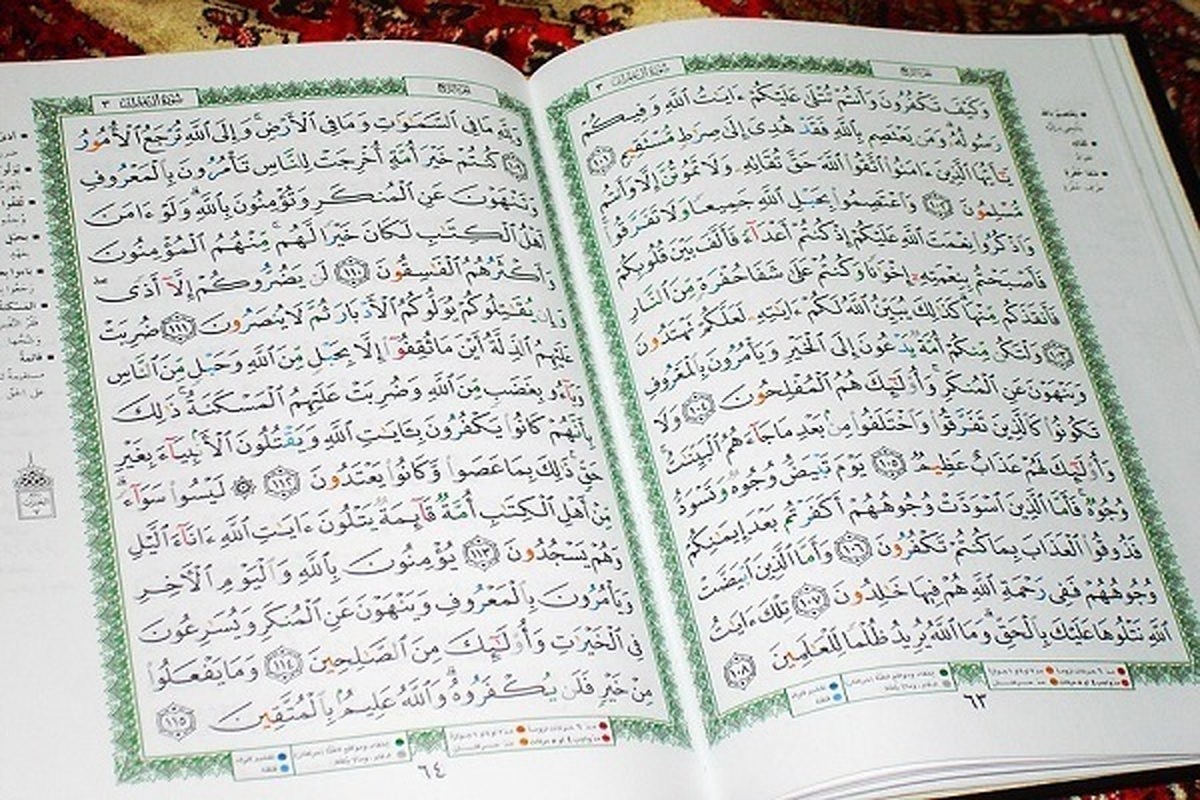 سُورَةُ آلِ عِمْرَانَ ٣
الجزء الرابع
وَكَيْفَ تَكْفُرُونَ وَأَنتُمْ تُتْلَىٰ عَلَيْكُمْ ءَايَٰتُ ٱللَّهِ وَفِيكُمْ
رَسُولُهُۥ ۗ وَمَن يَعْتَصِم بِٱللَّهِ فَقَدْ هُدِىَ إِلَىٰ صِرَٰطٍ مُّسْتَقِيمٍ ١٠١
يَٰٓأَيُّهَا ٱلَّذِينَ ءَامَنُوا۟ ٱتَّقُوا۟ ٱللَّهَ حَقَّ تُقَاتِهِۦ وَلَا تَمُوتُنَّ إِلَّا وَأَنتُم
مُّسْلِمُونَ ١٠٢ وَٱعْتَصِمُوا۟ بِحَبْلِ ٱللَّهِ جَمِيعًا وَلَا تَفَرَّقُوا۟ ۚ
وَٱذْكُرُوا۟ نِعْمَتَ ٱللَّهِ عَلَيْكُمْ إِذْ كُنتُمْ أَعْدَآءً فَأَلَّفَ بَيْنَ قُلُوبِكُمْ
فَأَصْبَحْتُم بِنِعْمَتِهِۦٓ إِخْوَٰنًا وَكُنتُمْ عَلَىٰ شَفَا حُفْرَةٍ مِّنَ ٱلنَّارِ
فَأَنقَذَكُم مِّنْهَا ۗ كَذَٰلِكَ يُبَيِّنُ ٱللَّهُ لَكُمْ ءَايَٰتِهِۦ لَعَلَّكُمْ تَهْتَدُونَ
١٠٣ وَلْتَكُن مِّنكُمْ أُمَّةٌ يَدْعُونَ إِلَى ٱلْخَيْرِ وَيَأْمُرُونَ بِٱلْمَعْرُوفِ
وَيَنْهَوْنَ عَنِ ٱلْمُنكَرِ ۚ وَأُو۟لَٰٓئِكَ هُمُ ٱلْمُفْلِحُونَ ١٠٤ وَلَا
تَكُونُوا۟ كَٱلَّذِينَ تَفَرَّقُوا۟ وَٱخْتَلَفُوا۟ مِنۢ بَعْدِ مَا جَآءَهُمُ ٱلْبَيِّنَٰتُ ۚ
وَأُو۟لَٰٓئِكَ لَهُمْ عَذَابٌ عَظِيمٌ ١٠٥ يَوْمَ تَبْيَضُّ وُجُوهٌ وَتَسْوَدُّ
وُجُوهٌ ۚ فَأَمَّا ٱلَّذِينَ ٱسْوَدَّتْ وُجُوهُهُمْ أَكَفَرْتُم بَعْدَ إِيمَٰنِكُمْ
فَذُوقُوا۟ ٱلْعَذَابَ بِمَا كُنتُمْ تَكْفُرُونَ ١٠٦ وَأَمَّا ٱلَّذِينَ ٱبْيَضَّتْ
وُجُوهُهُمْ فَفِى رَحْمَةِ ٱللَّهِ هُمْ فِيهَا خَٰلِدُونَ ١٠٧ تِلْكَ ءَايَٰتُ
ٱللَّهِ نَتْلُوهَا عَلَيْكَ بِٱلْحَقِّ ۗ وَمَا ٱللَّهُ يُرِيدُ ظُلْمًا لِّلْعَٰلَمِينَ ١٠٨
٦٣
سُورَةُ آلِ عِمْرَانَ ٣
الجزء الرابع
وَلِلَّهِ مَا فِى ٱلسَّمَٰوَٰتِ وَمَا فِى ٱلْأَرْضِ ۚ وَإِلَى ٱللَّهِ تُرْجَعُ ٱلْأُمُورُ
١٠٩ كُنتُمْ خَيْرَ أُمَّةٍ أُخْرِجَتْ لِلنَّاسِ تَأْمُرُونَ بِٱلْمَعْرُوفِ
وَتَنْهَوْنَ عَنِ ٱلْمُنكَرِ وَتُؤْمِنُونَ بِٱللَّهِ ۗ وَلَوْ ءَامَنَ
أَهْلُ ٱلْكِتَٰبِ لَكَانَ خَيْرًا لَّهُم ۚ مِّنْهُمُ ٱلْمُؤْمِنُونَ
وَأَكْثَرُهُمُ ٱلْفَٰسِقُونَ ١١٠ لَن يَضُرُّوكُمْ إِلَّآ أَذًى ۖ
وَإِن يُقَٰتِلُوكُمْ يُوَلُّوكُمُ ٱلْأَدْبَارَ ثُمَّ لَا يُنصَرُونَ ١١١ ضُرِبَتْ
عَلَيْهِمُ ٱلذِّلَّةُ أَيْنَ مَا ثُقِفُوٓا۟ إِلَّا بِحَبْلٍ مِّنَ ٱللَّهِ وَحَبْلٍ مِّنَ ٱلنَّاسِ
وَبَآءُو بِغَضَبٍ مِّنَ ٱللَّهِ وَضُرِبَتْ عَلَيْهِمُ ٱلْمَسْكَنَةُ ۚ ذَٰلِكَ
بِأَنَّهُمْ كَانُوا۟ يَكْفُرُونَ بِـَٔايَٰتِ ٱللَّهِ وَيَقْتُلُونَ ٱلْأَنۢبِيَآءَ بِغَيْرِ
حَقٍّ ۚ ذَٰلِكَ بِمَا عَصَوا۟ وَّكَانُوا۟ يَعْتَدُونَ ١١٢ ۞ لَيْسُوا۟ سَوَآءً ۗ
مِّنْ أَهْلِ ٱلْكِتَٰبِ أُمَّةٌ قَآئِمَةٌ يَتْلُونَ ءَايَٰتِ ٱللَّهِ ءَانَآءَ ٱلَّيْلِ
وَهُمْ يَسْجُدُونَ ١١٣ يُؤْمِنُونَ بِٱللَّهِ وَٱلْيَوْمِ ٱلْءَاخِرِ
وَيَأْمُرُونَ بِٱلْمَعْرُوفِ وَيَنْهَوْنَ عَنِ ٱلْمُنكَرِ وَيُسَٰرِعُونَ
فِى ٱلْخَيْرَٰتِ وَأُو۟لَٰٓئِكَ مِنَ ٱلصَّٰلِحِينَ ١١٤ وَمَا يَفْعَلُوا۟
مِنْ خَيْرٍ فَلَن يُكْفَرُوهُ ۗ وَٱللَّهُ عَلِيمٌۢ بِٱلْمُتَّقِينَ ١١٥
٦٤